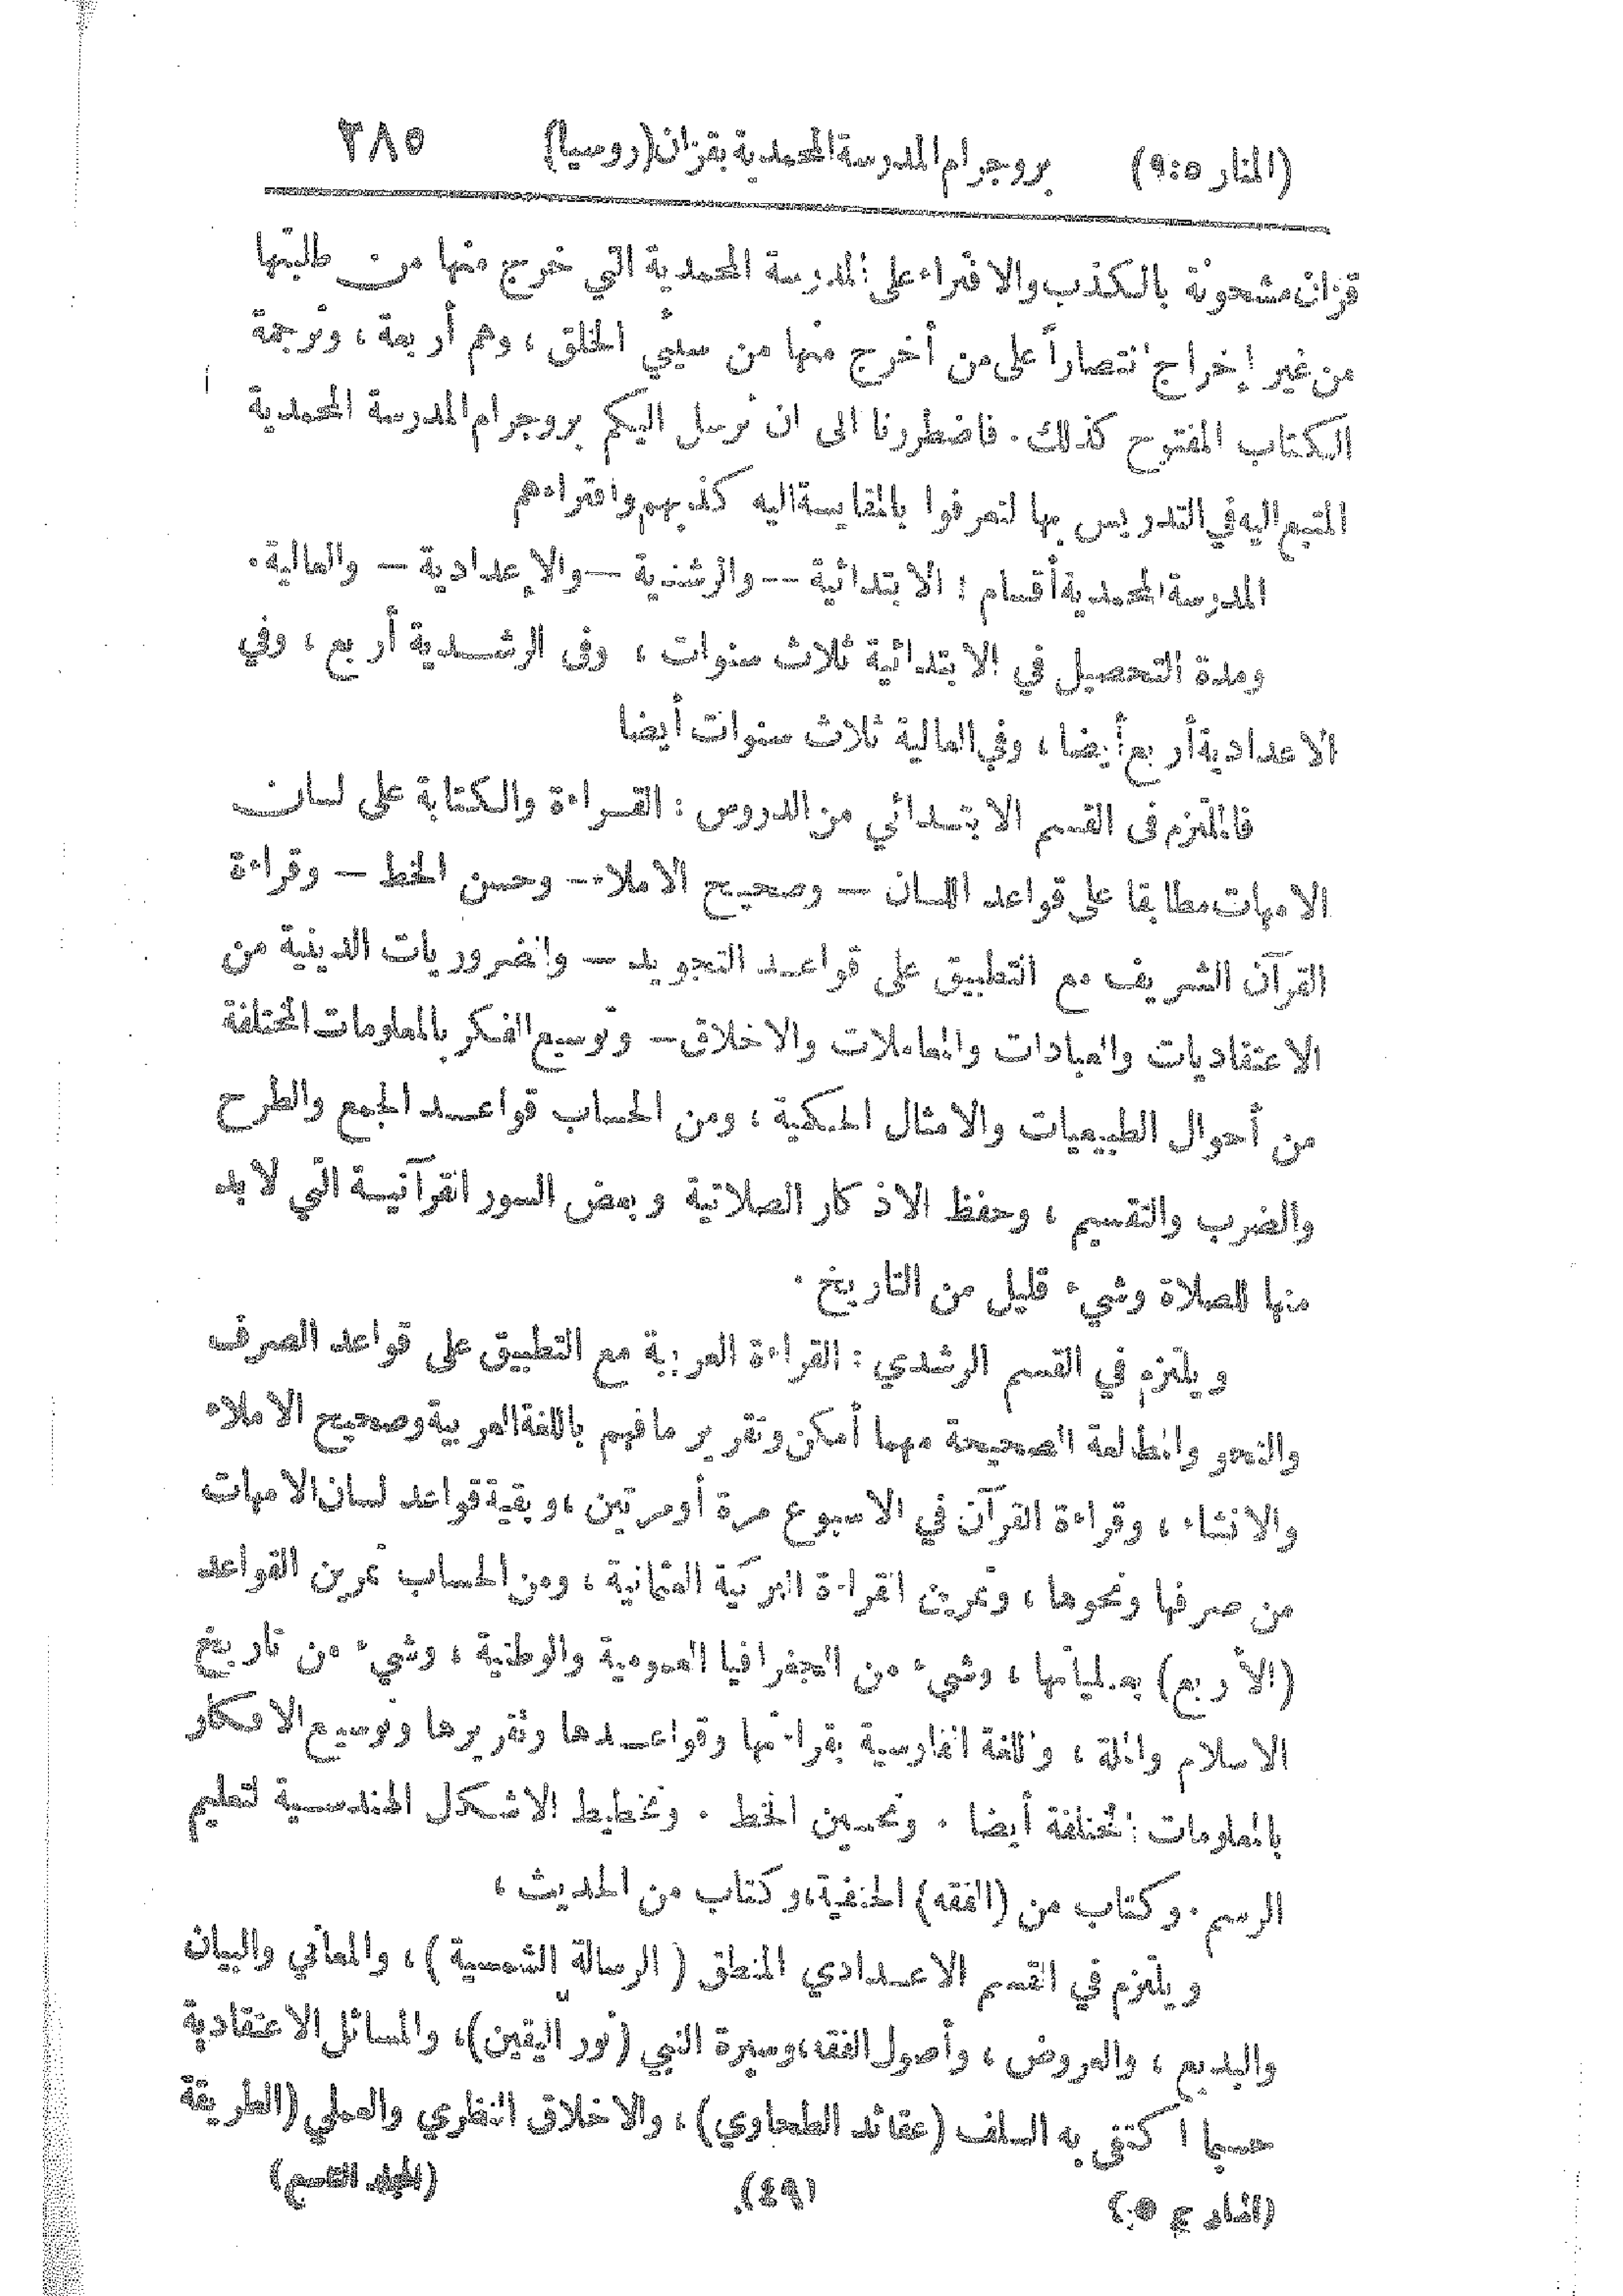 (المنار ٥:٩) بروجرام المدرسة المحمدية بقزان (روسيا) ٣٨٥
قزان مشحونة بالكذب والافتراء على المدرسة المحمدية التي خرج منها من طلبتها
من غير إخراج انتصاراً على من أخرج منها من سيئي الخلق ، وهم أربعة ، وترجمة
الكتاب المفتوح كذلك . فاضطررنا الى ان نرسل اليكم بروجرام المدرسة المحمدية
المتبع اليه في التدريس بها لتعرفوا بالمقايسة اليه كذبهم وافتراءهم
المدرسة المحمدية أقسام : الابتدائية -- والرشدية — والإعدادية — والعالية .
ومدة التحصيل في الابتدائية ثلاث سنوات ، وفى الرشدية أربع ، وفي
الاعدادية أربع أيضا ، وفي العالية ثلاث سنوات أيضا
فالملتزم فى القسم الابتدائي من الدروس : القراءة والكتابة على لسان
الامهات مطابقا على قواعد اللسان — وصحيح الاملاء — وحسن الخط — وقراءة
القرآن الشريف مع التطبيق على قواعد التجويد — والضروريات الدينية من
الاعتقاديات والعبادات والمعاملات والاخلاق — وتوسيع الفكر بالمعلومات المختلفة
من أحوال الطبيعيات والامثال الحكمية ، ومن الحساب قواعد الجمع والطرح
والضرب والتقسيم ، وحفظ الاذكار الصلاتية وبعض السور القرآنية التي لا بد
منها للصلاة وشيء قليل من التاريخ .
ويلتزم في القسم الرشدي : القراءة العربية مع التطبيق على قواعد الصرف
والنحو والمطالعة الصحيحة مهما أمكن وتقرير ما فهم باللغة العربية وصحيح الاملاء
والانشاء ، وقراءة القرآن في الاسبوع مرة أو مرتين ، وبقية قواعد لسان الامهات
من صرفها ونحوها ، وتمرين القراءة التركية العثمانية ، ومن الحساب تمرين القواعد
(الأربع) بعملياتها ، وشيء من الجغرافيا العمومية والوطنية ، وشيء من تاريخ
الاسلام والملة ، واللغة الفارسية بقراءتها وقواعدها وتقريرها وتوسيع الافكار
بالمعلومات المختلفة أيضا . وتحسين الخط . وتخطيط الاشكال الهندسية لتعليم
الرسم . وكتاب من (الفقه) الحنفية ، وكتاب من الحديث ،
ويلتزم في القسم الاعدادي المنطق ( الرسالة الشمسية ) ، والمعاني والبيان
والبديع ، والعروض ، وأصول الفقه ، وسيرة النبي (نور اليقين)، والمسائل الاعتقادية
حسبما اكتفى به السلف (عقائد الطحاوي) ، والاخلاق النظري والعملي (الطريقة
(المنار ج ٥) (٤٩) (المجلد التاسع)